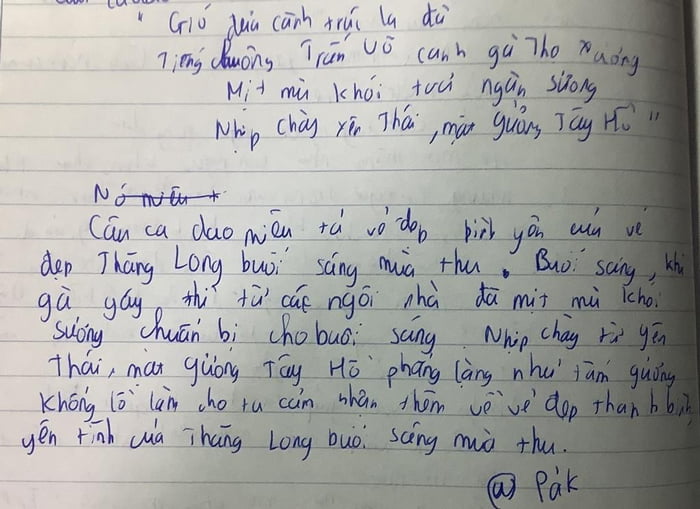 " Gió đưa cành trúc la đà
Tiếng chuông Trấn Võ canh gà Thọ Xương
Mịt mù khói tưới ngàn sương
Nhịp chày Yên Thái, mặt gương Tây Hồ "
Nó miêu t
Câu ca dao miêu tả vẻ đẹp bình yên của vẻ
đẹp Thăng Long buổi sáng mùa thu. Buổi sáng, khi
gà gáy, thì từ các ngôi nhà đã mịt mù khói
sương chuẩn bị cho buổi sáng. Nhịp chày từ Yên
Thái, mặt gương Tây Hồ phẳng lặng như tấm gương
khổng lồ làm cho ta cảm nhận thêm về vẻ đẹp thanh bình,
yên tĩnh của Thăng Long buổi sáng mùa thu.
@ Pák